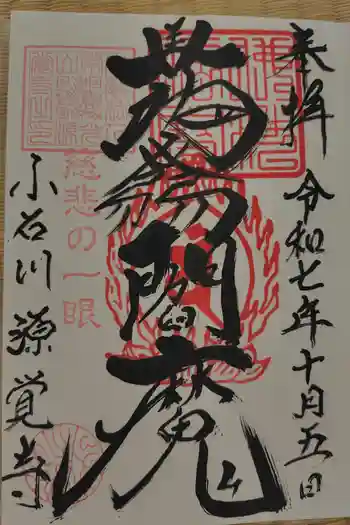 奉拝 令和七年十月五日
蒟蒻閻魔
慈悲の一眼
小石川 源覚寺